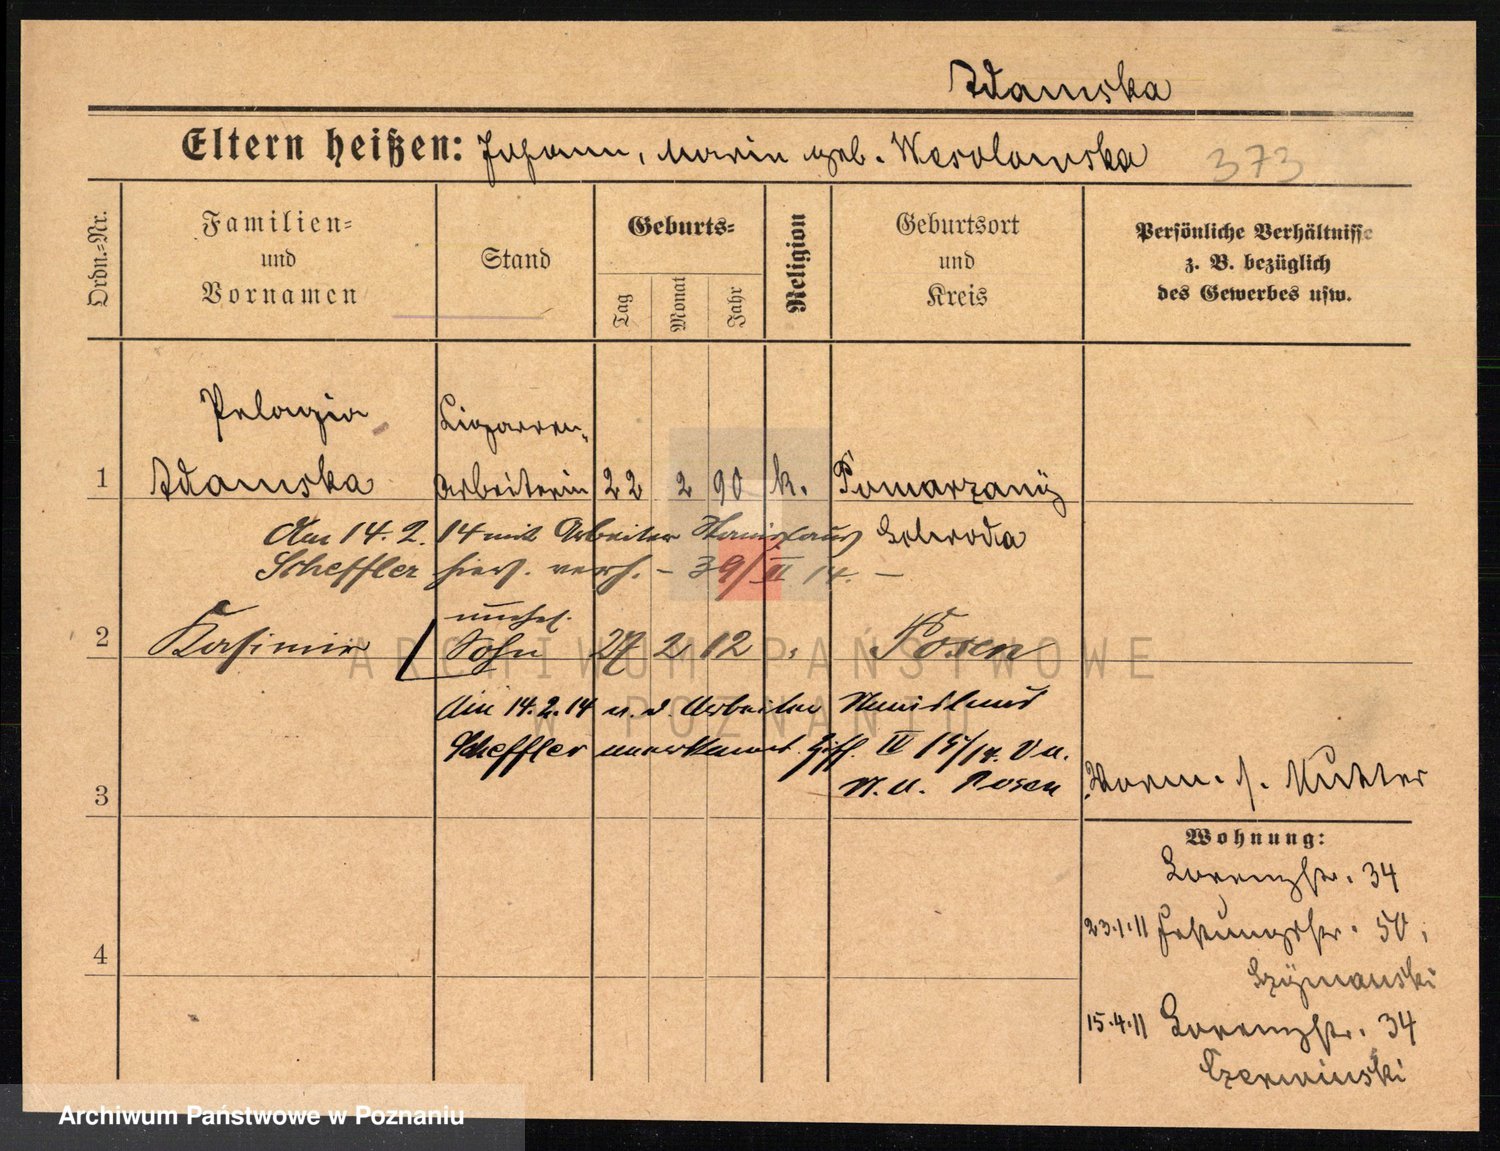 Adamska
Eltern heißen: Johann, Maria geb. Wesolowska 373
Ordn.-Nr.
Familien-
und
Vornamen
Stand
Geburts-
Tag
Monat
Jahr
Religion
Geburtsort
und
Kreis
Persönliche Verhältnisse
z. B. bezüglich
des Gewerbes usw.
Pelagia Cigarren-
1 Adamska arbeiterin 22 2 90 k. Pomarzany
Am 14. 2. 14 mit Arbeiter Stanislaus Schroda
Scheffler hier verh. – 39/II 14. –
unehel.
2 Kasimir Sohn 27 2 12 Posen
Am 14.2.14 v. d. Arbeiter Stanislaus
Scheffler anerkannt. IV 15/14.
Posen
3
4
Worm. s. Mutter
Wohnung:
Lorenzstr. 34
23.1.11 Festungsstr. 50,
Szymanski
15.4.11 Lorenzstr. 34
Czerwinski
ARCHIWUM PAŃSTWOWE
W POZNANIU
Archiwum Państwowe w Poznaniu